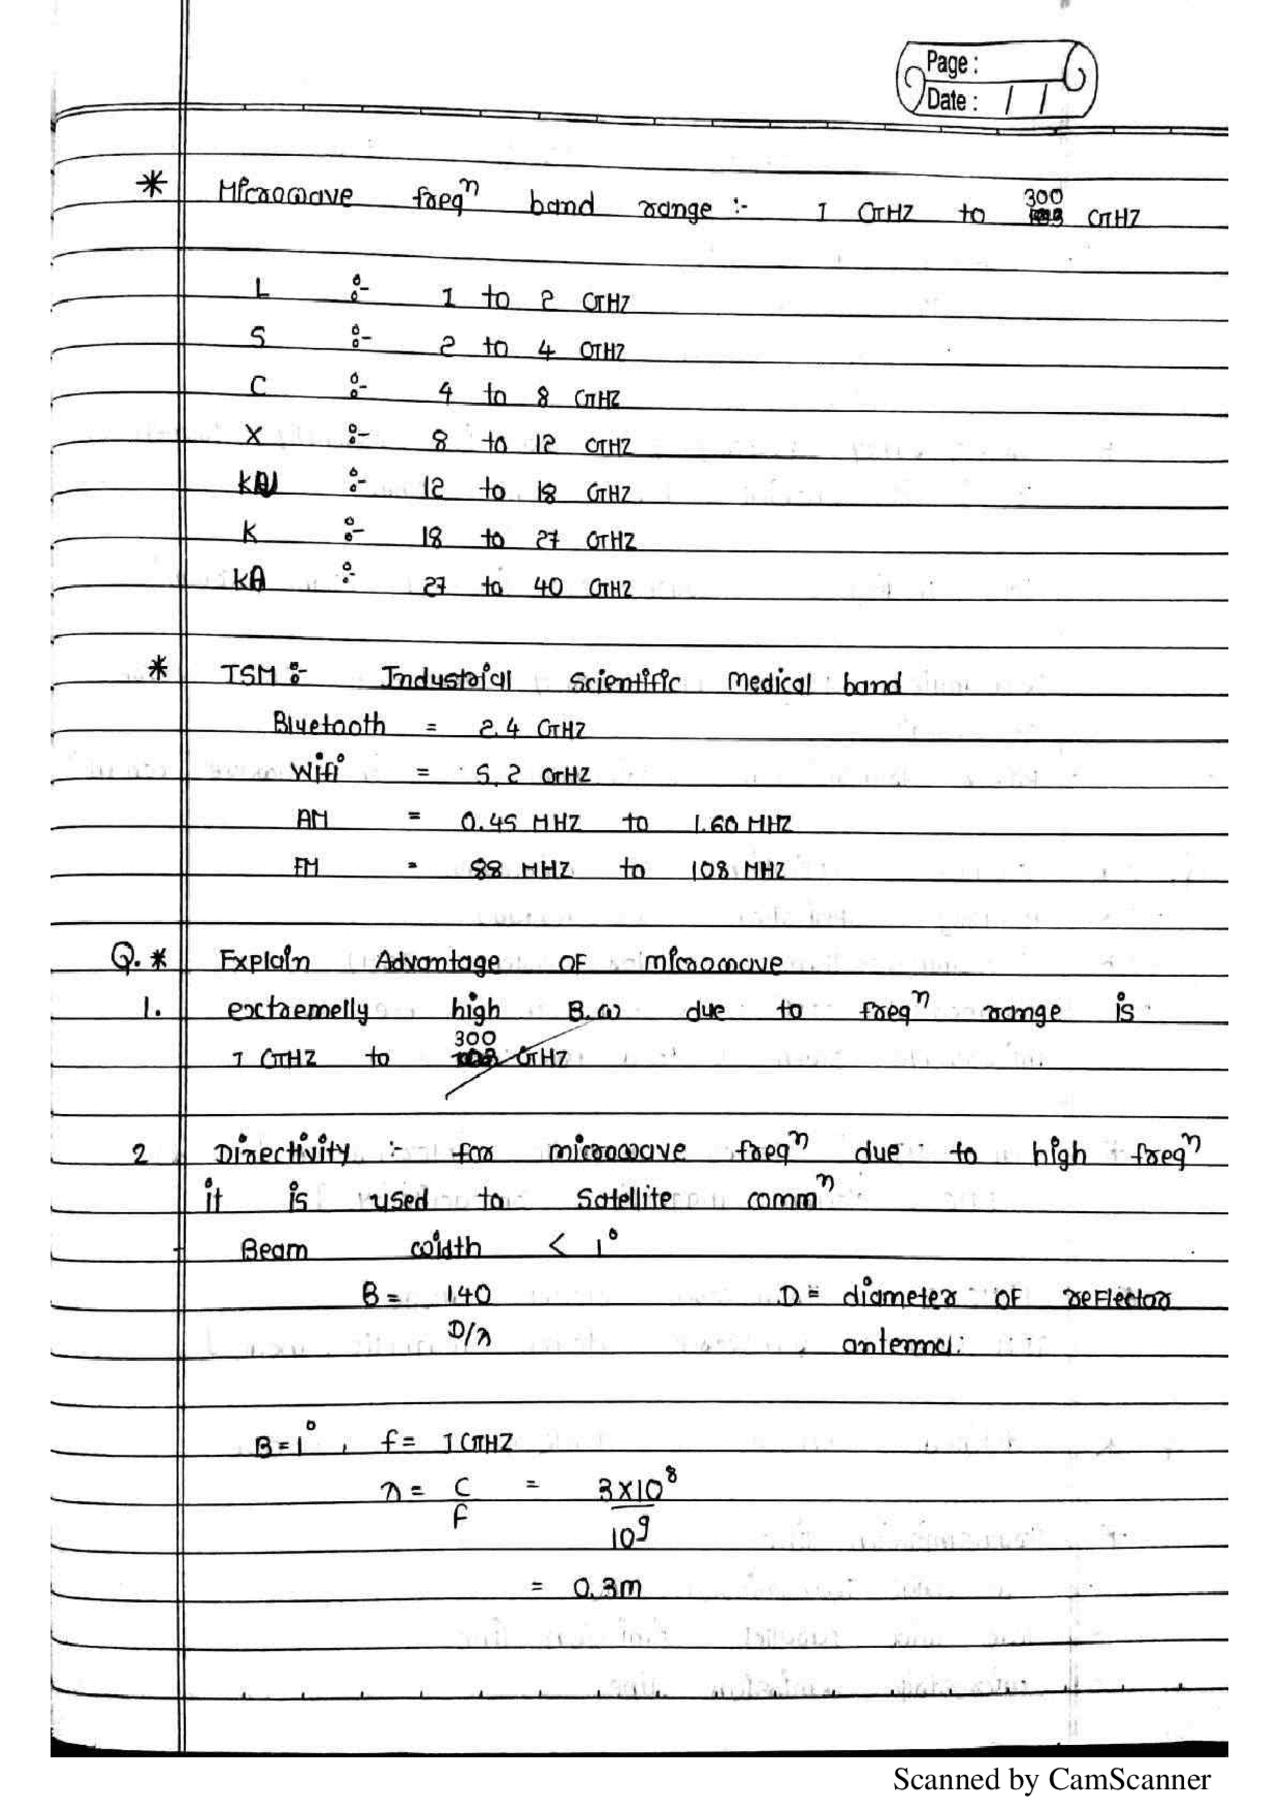 Page :
Date : / /
* Microwave freqⁿ band range :- 1 GHZ to 300 GHZ
L :- 1 to 2 GHZ
S :- 2 to 4 GHZ
C :- 4 to 8 GHZ
X :- 8 to 12 GHZ
KU :- 12 to 18 GHZ
K :- 18 to 27 GHZ
KA :- 27 to 40 GHZ
* ISM :- Industrial Scientific Medical band
Bluetooth = 2.4 GHZ
Wifi = 5.2 GHZ
AM = 0.45 MHZ to 1.60 MHZ
FM = 88 MHZ to 108 MHZ
Q. * Explain Advantage OF microwave
1. extremelly high B.W due to freqⁿ range is
1 GHZ to 300 GHZ
2 Directivity :- for microwave freqⁿ due to high freqⁿ
it is used to Satellite commⁿ
Beam width < 1°
B = 140 D = diameter OF reflector
D/λ antenna.
B = 1°, f = 1 GHZ
λ = C/F = 3×10⁸/10⁹
= 0.3m
Scanned by CamScanner